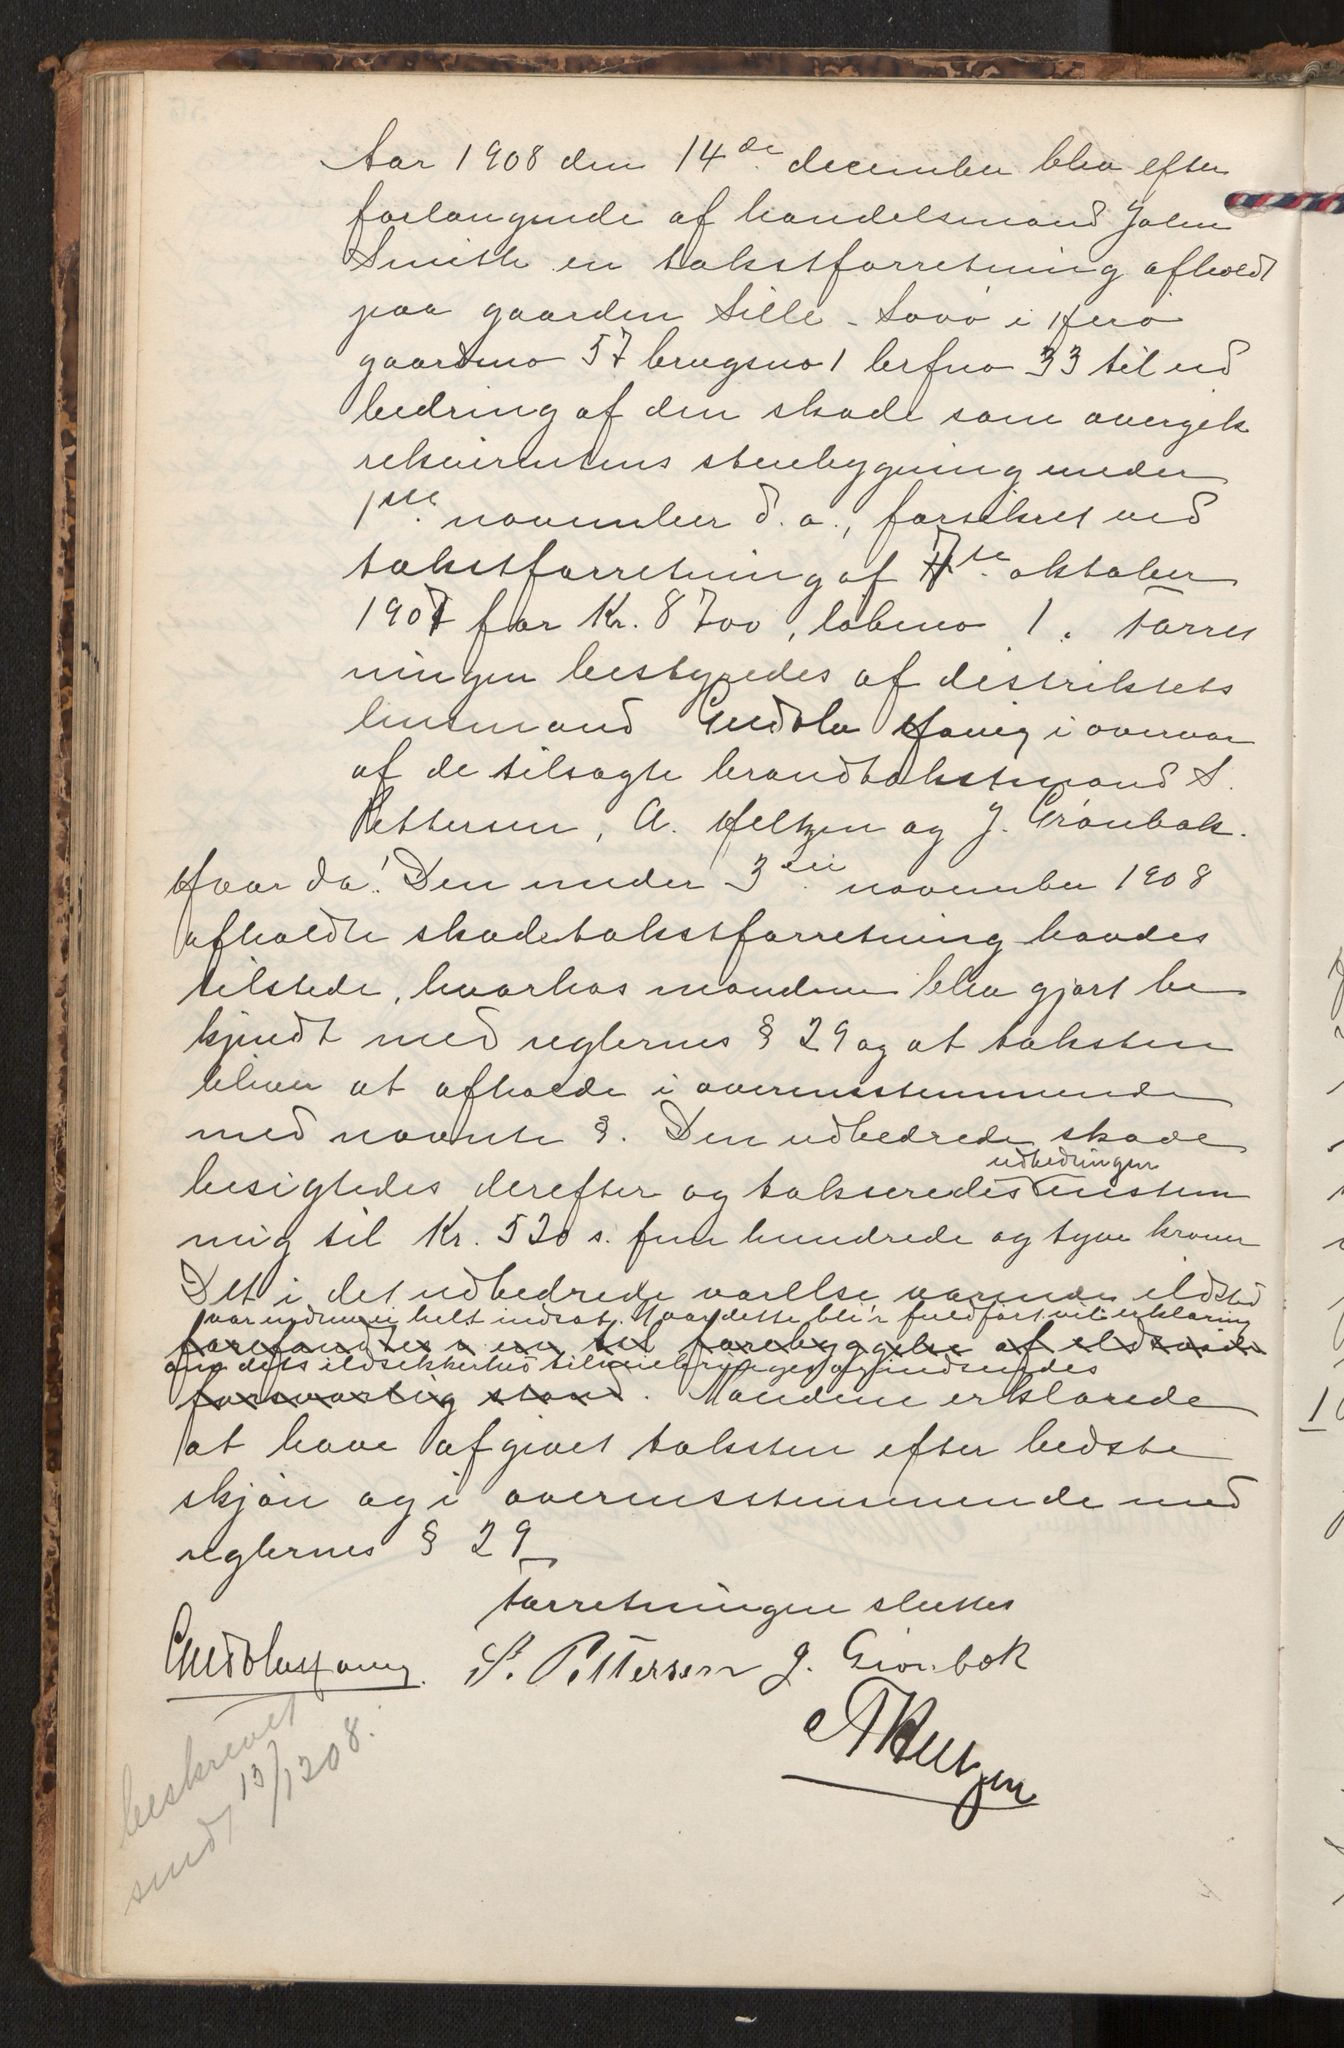 Aar 1908 den 14de december blev efter
forlangende af handelsmand John
Smith en takstforretning afholdt
paa gaarden Lille-Lovø i Herø
gaardsno 57 brugsno 1 brfno 33 til ud
bedring af den skade som overgik
rekvirentens stuebygning under
1ste november d.a., forsikret ved
takstforretning af 7de oktober
1907 for Kr. 8700, løbeno 1. Forret
ningen bestyredes af distriktets
lensmand Gudolv Hoveig i overvær
af de tilsagte brandtakstmænd S.
Pettersen, A. Heltzen og J. Grønbæk.
Hvor da: Den under 3die november 1908
afholdte skadetakstforretning havdes
tilstede, hvorhos mændene blev gjort be
kjendt med reglernes § 29 og at taksten
bliver at afholde i overensstemmende
med nævnte §. Den udbedrede skade
udbedringen
besigtedes derefter og takseredes enstem
mig til Kr. 520 s. fem hundrede og tyve kroner
Det i det udbedrede værelse værende ildsted
var endnu ei helt indsat. Naar dette bli'r fuldført vil erklæring
forefandtes i en til forebyggelse af ildsvaade
om dets ildsikkerhed tilveiebringes og indsendes
forsvarlig stand. Mændene erklærede
at have afgivet taksten efter bedste
skjøn og i overensstemmende med
reglernes § 29
Forretningen sluttes
Gudolv Hoveig. S. Pettersen J. Grønbæk
A Heltzen
beskrevet
sendt 13/12 08.